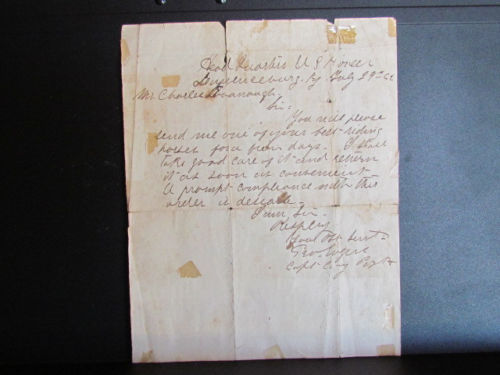 Head Quarters U S Forces
Lawrenceburg Ky July 29th 64
Mr. Charles Kavanaugh
Sir:
You will please
send me one of your best riding
horses for a few days. I shall
take good care of it and return
it as soon as convenient
A prompt compliance with this
order is desirable.
I am Sir.
Respcly
Your Obt Servt
Capt Comg